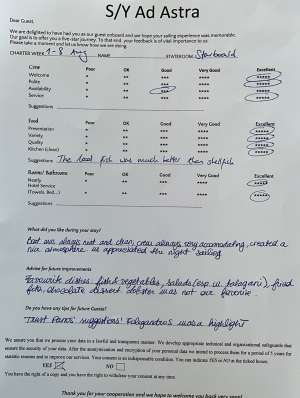 S/Y Ad Astra
Dear Guest,
We are delighted to have had you as our guest onboard and we hope your sailing experience was memorable.
Our goal is to offer you a five-star journey. To that end, your feedback is of vital importance to us.
Please take a moment and let us know how we are doing.
CHARTER WEEK 1-8 Aug NAME STATEROOM Starboard
Crew Poor OK Good Very Good Excellent
Welcome * ** *** **** *****
Polite * ** *** **** *****
Availability * ** *** **** *****
Service * ** *** **** *****
Suggestions
Food Poor OK Good Very Good Excellent
Presentation * ** *** **** *****
Variety * ** *** **** *****
Quality * ** *** **** *****
Kitchen (clean) * ** *** **** *****
Suggestions The local fish was much better than shellfish
Rooms/ Bathrooms Poor OK Good Very Good Excellent
Ready * ** *** **** *****
Hotel Service
(Towels, Bed...) * ** *** **** *****
Suggestions
What did you like during your stay?
Boat was always neat and clean, crew always very accomodating, created a
nice atmosphere, we appreciated the night sailing
Advice for future improvements
Favourite dishes: fish & vegetables, salads (esp. w. ), fried
feta, chocolate dessert. Lobster was not our favorite.
Do you have any tips for future Guests?
Trust Panos' suggestions! Folegandros was a highlight
We assure you that we process your data in a lawful and transparent manner. We develop appropriate technical and organizational safeguards that
ensure the security of your data. After the anonymization and encryption of your personal data we intend to process them for a period of 5 years for
statistic reasons and to improve our services. Your consent is an indispensable condition. You can indicate YES or NO in the ticked boxes.
YES NO
You have the right of a copy and you have the right to withdraw your consent at any time.
Thank you for your cooperation and we hope to welcome you back very soon!